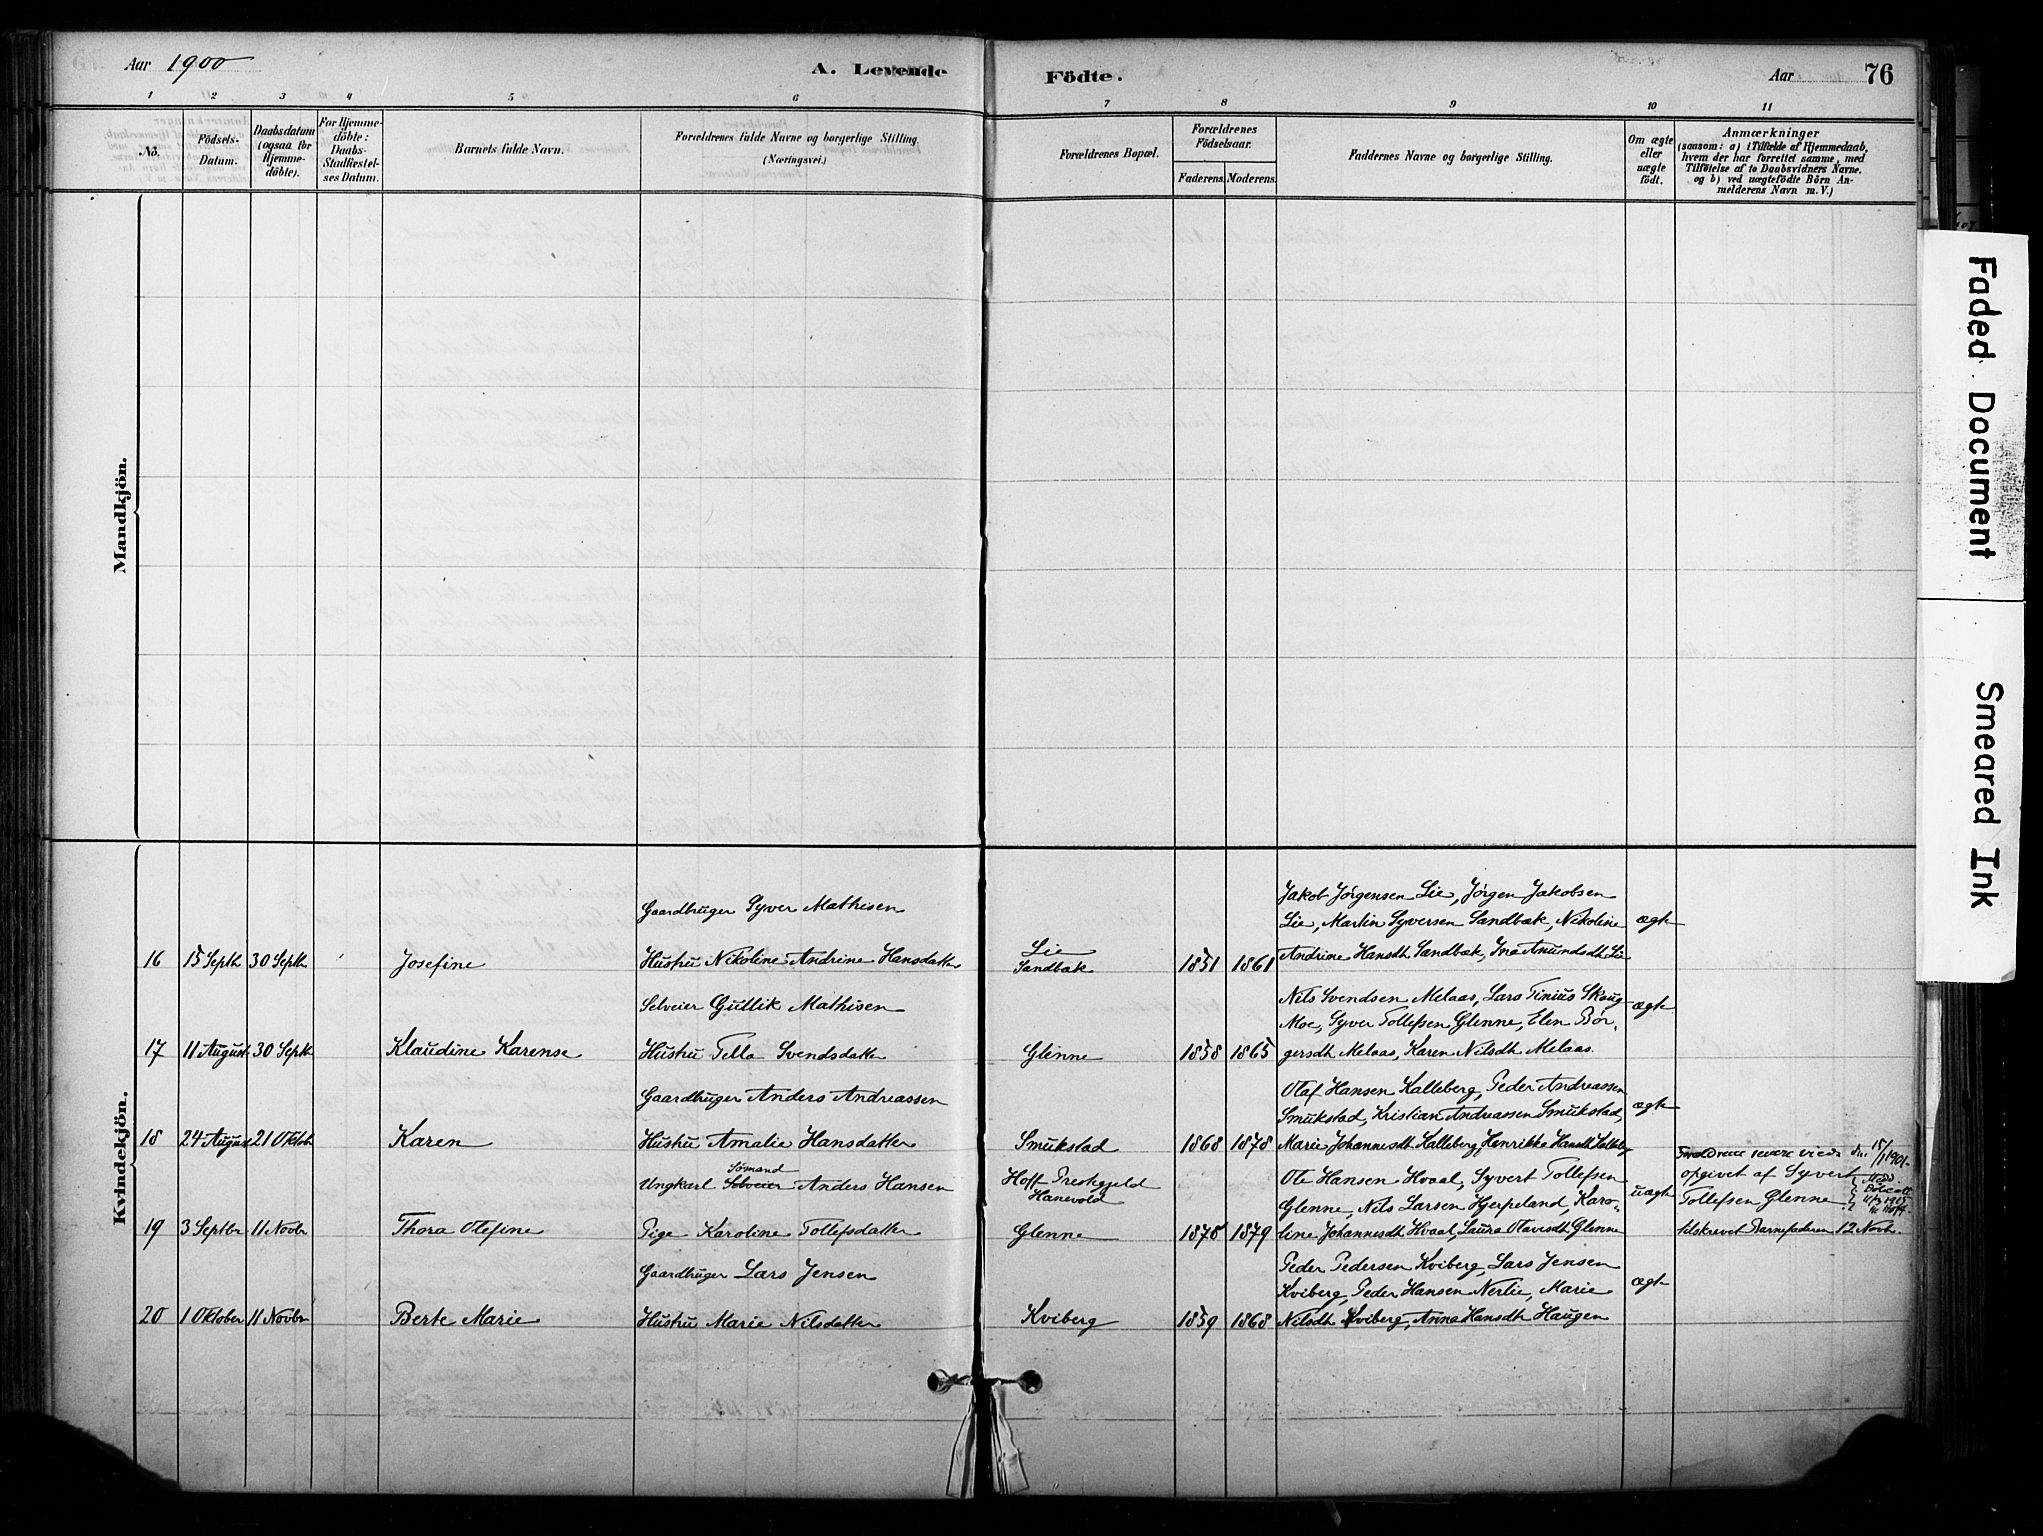 Aar 1900
A. Levende
Födte.
Aar
76
1 2 3 4 5 6 7 8 9 10 11
No.
Födsels-
Datum.
Daabsdatum
(ogsaa for
Hjemme-
döbte).
For Hjemme-
döbte:
Daabs-
Stadfæstel-
ses Datum.
Barnets fulde Navn.
Forældrenes fulde Navne og borgerlige Stilling.
(Næringsvei.)
Forældrenes Bopæl.
Forældrenes
Födselsaar.
Faderens. Moderens.
Faddernes Navne og borgerlige Stilling.
Om ægte
eller
uægte
födt.
Anmærkninger
(saasom: a) i Tilfælde af Hjemmedaab,
hvem der har forrettet samme, med
Tilföielse af to Daabsvidners Navne.
og b) ved uægtefödte Börn An-
melderens Navn m. V.)
Mandkjön.
Kvindekjön.
Gaardbruger Syver Mathisen
Jakob Jørgensen Lie, Jørgen Jakobsen
Lie, Martin Syversen Sandbak, Nikoline
ægte
16 15 Septb 30 Septb Josefine Hustru Nikoline Andrine Hansdatter
Lie
Sandbak
1851 1861
Andrine Hansdtr Sandbak, Ina Amundsdtr Lie
Selveier Gullik Mathisen
Nils Svendsen Melaas, Lars Tinius Skaug
Moe, Syver Tollefsen Glenne, Elen Bør-
ægte
17 11 August 30 Septb Klaudine Karense Hustru Tella Svendsdatter Glenne 1858 1865 gersdtr Melaas, Karen Nilsdtr Melaas.
Gaardbruger Anders Andreassen
Olaf Hansen Kalleberg, Peder Andreassen
Smukstad, Kristian Andreassen Smukstad,
ægte
18 24 August 21 Oktob Karen Hustru Amalie Hansdatter Smukstad 1868 1878 Marie Johannesdtr Kalleberg, Henrikke Hansdtr Kalleberg
Sømand
Ungkarl Selveier Anders Hansen
Hoff Prestegjeld
Hanevold
Ole Hansen Hvaal, Syvert Tollefsen
Glenne, Nils Larsen Hjerpeland, Karo-
uægte
Forældrene senere viede den 15/1 1901.
opgivet af Syvert
Tollefsen Glenne
19 3 Septbr 11 Novbr Thora Olefine Pige Karoline Tollefsdatter Glenne 1878 1879 line Johannesdtr Hvaal, Laura Olavesdtr Glenne
tilskrevet Barnefaderen 12 Novbr.
Gaardbruger Lars Jensen
Peder Pedersen Kviberg, Lars Jensen
Kviberg, Peder Hansen Nerlie, Marie
ægte
20 1 Oktober 11 Novbr Berte Marie Hustru Marie Nilsdatter Kviberg 1859 1868 Nilsdtr Kviberg, Anna Hansdtr Haugen
Faded Document
Smeared Ink